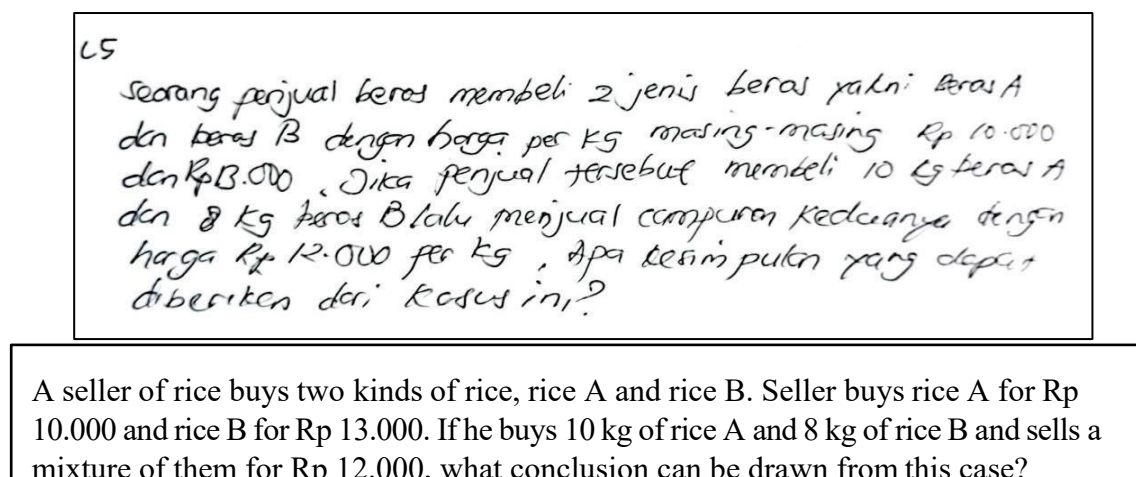 C5
Seorang penjual beras membeli 2 jenis beras yakni Beras A
dan beras B dengan harga per kg masing-masing Rp 10.000
dan Rp 13.000. Jika penjual tersebut membeli 10 kg beras A
dan 8 kg beras B lalu menjual campuran keduanya dengan
harga Rp 12.000 per kg. Apa kesimpulan yang dapat
diberikan dari kasus ini?
A seller of rice buys two kinds of rice, rice A and rice B. Seller buys rice A for Rp
10.000 and rice B for Rp 13.000. If he buys 10 kg of rice A and 8 kg of rice B and sells a
mixture of them for Rp 12.000, what conclusion can be drawn from this case?